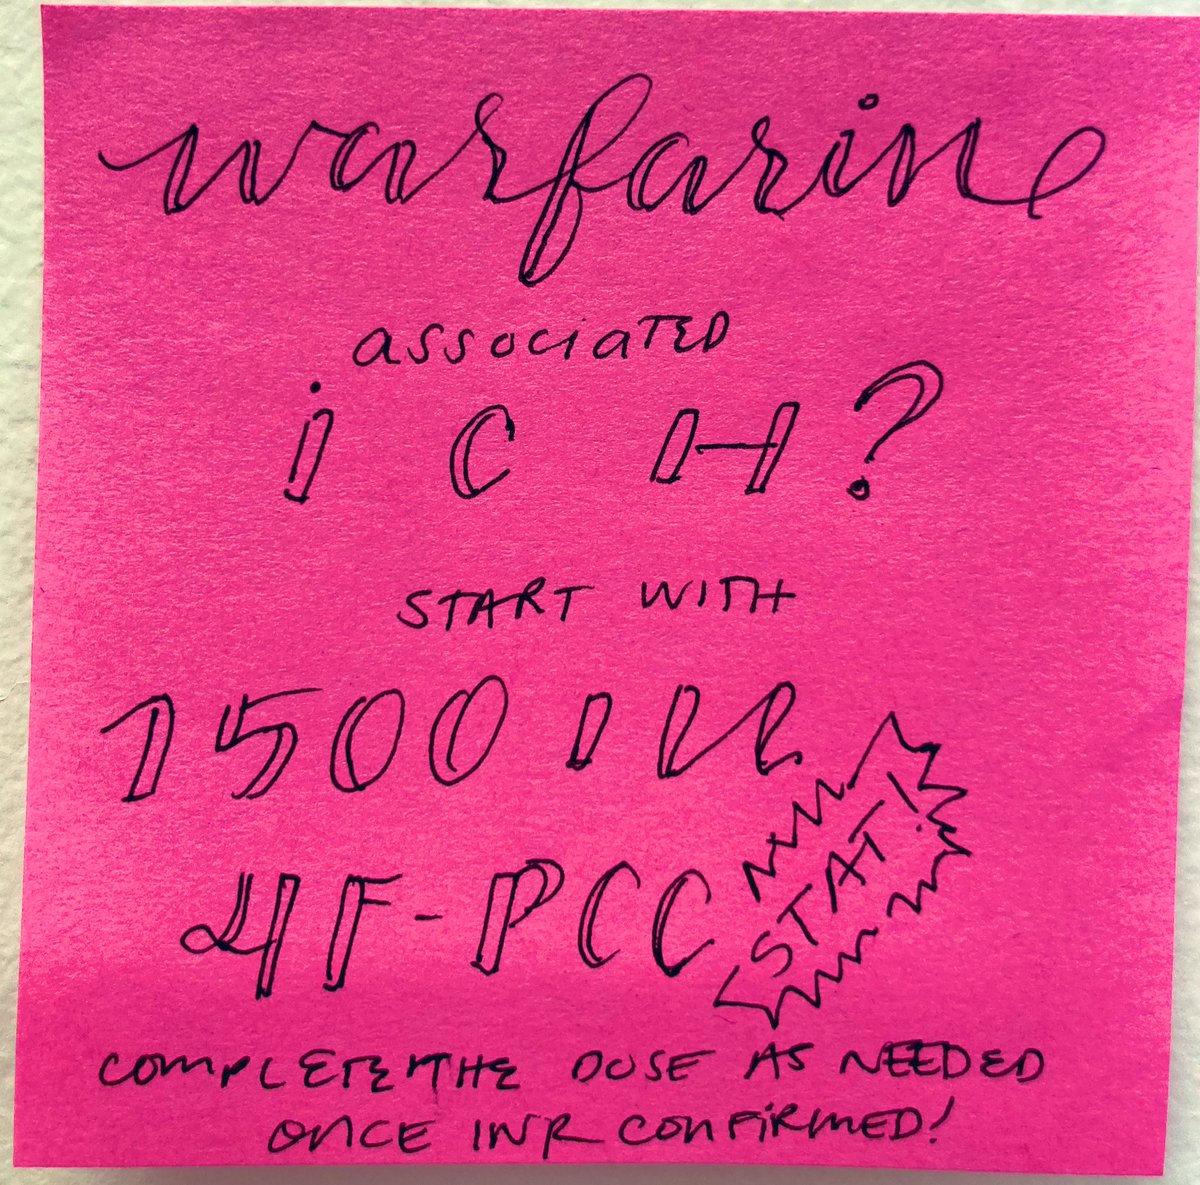 warfarin
associated
iCH?
START WITH
1500 iu
4F-PCC
STAT!
COMPLETE THE DOSE AS NEEDED
ONCE INR CONFIRMED!